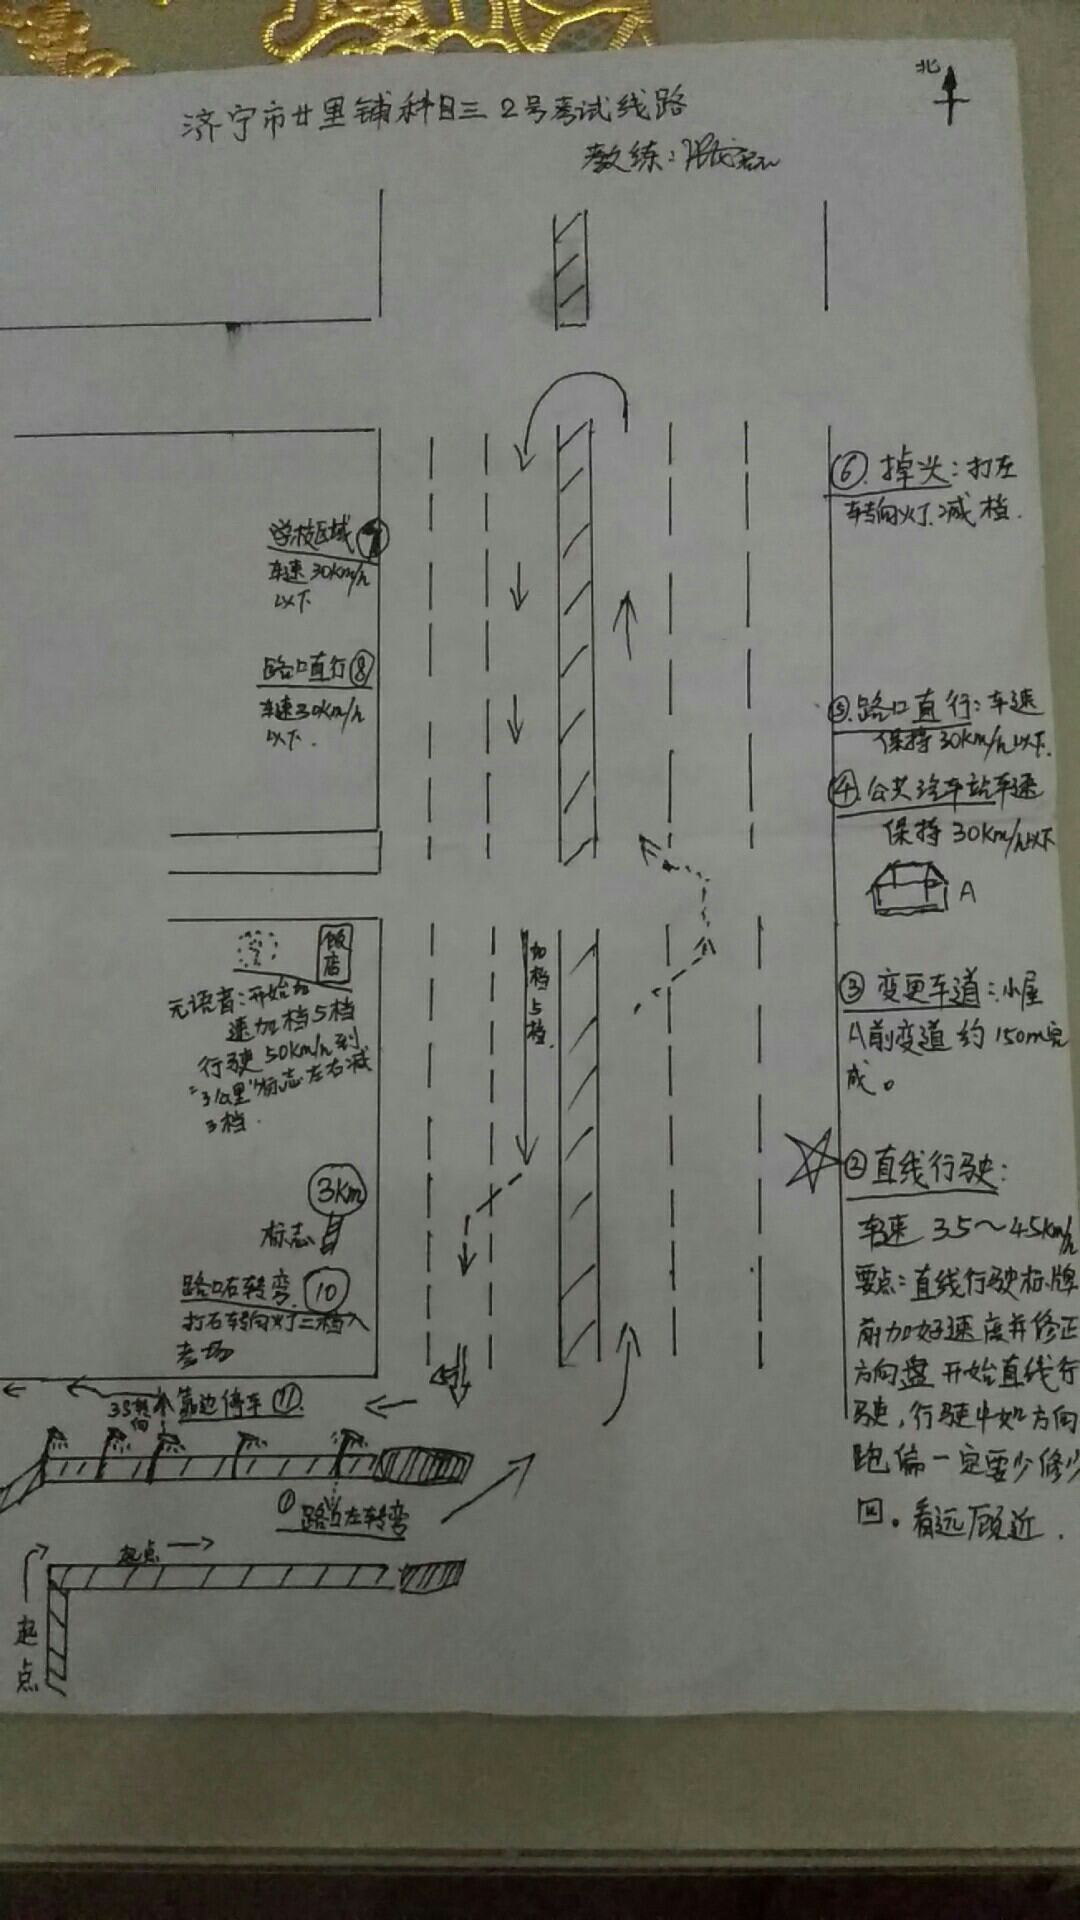 北
济宁市廿里铺科目三2号考试线路
教练:
⑥.掉头:打左
转向灯.减档.
学校区域
车速30km/h
以下
路口直行⑧
车速30km/h
以下.
⑤.路口直行:车速
保持30km/h以下.
④.公共汽车站车速
保持30km/h以下
A
饭店
无语音:开始加
速加档5档
行驶50km/h到
"3公里"标志左右减
3档.
加档5档.
③变更车道:小屋
A前变道约150m完
成。
②直线行驶:
车速35~45km/h
要点:直线行驶标牌
前加好速度并修正
方向盘开始直线行
驶,行驶中如方向
跑偏一定要少修少
回。看远顾近.
3km
标志
路口右转弯.⑩
打右转向灯二档入
考场
靠边停车⑪.
①路口左转弯
起点
起点